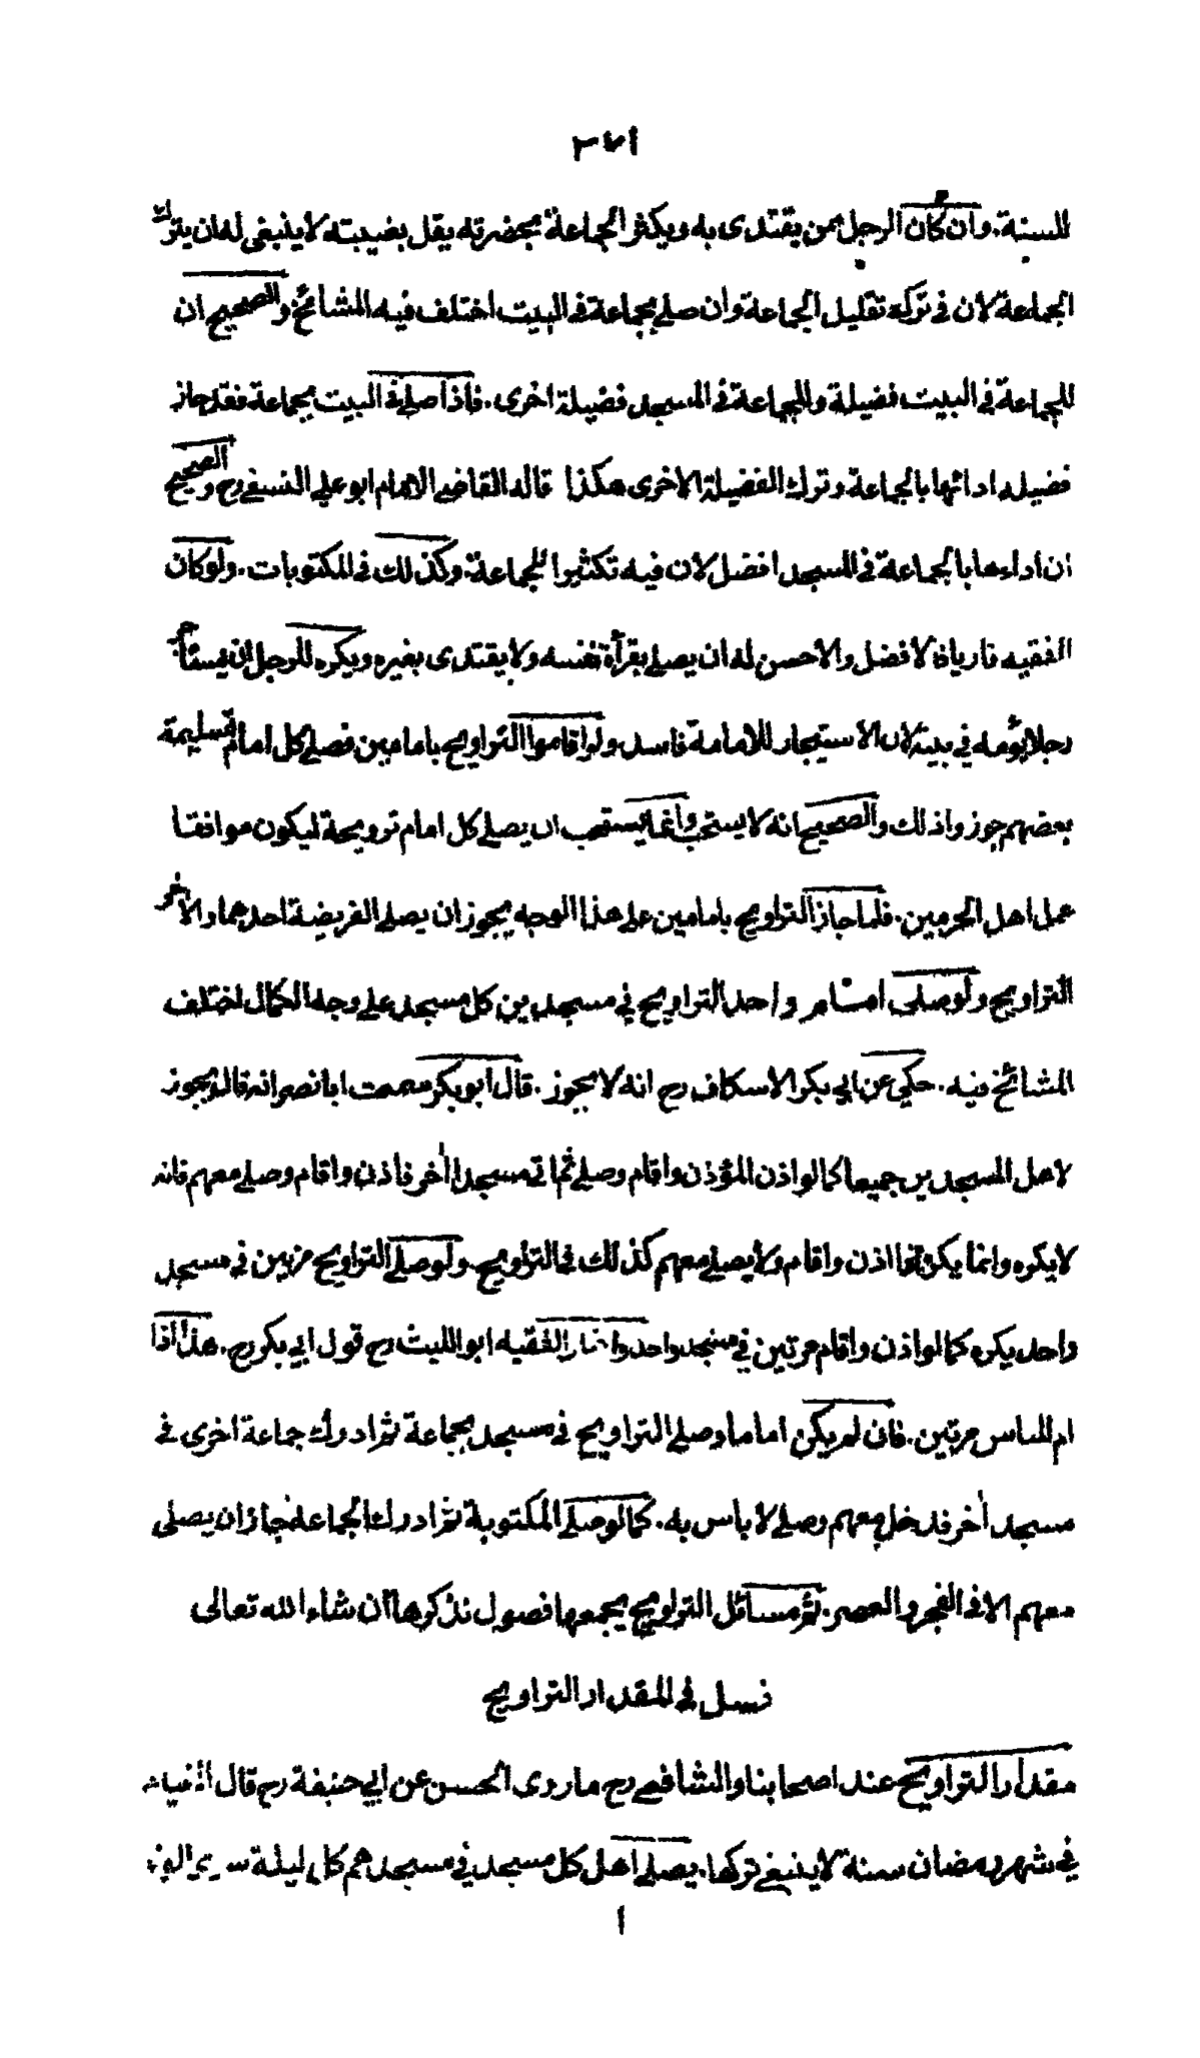 ٢٧١
للسنة. وان كان الرجل ممن يقتدى به ويكثر الجماعة بحضرته يقل بغيبته لا ينبغى له ان يترك
الجماعة لان فى تركه تقليل الجماعة وان صلى بجماعة فى البيت اختلف فيه المشائخ والصحيح ان
للجماعة فى البيت فضيلة وللجماعة فى المسجد فضيلة اخرى. فاذا صلى فى البيت بجماعة فقد حاز
فضيله ادائها بالجماعة وترك الفضيلة الاخرى هكذا قاله القاضى الامام ابو على النسفى رح والصحيح
ان اداءها بالجماعة فى المسجد افضل لان فيه تكثيرا للجماعة. وكذلك فى المكتوبات. ولو كان
الفقيه قارياة لافضل والاحسن له ان يصلى بقرأة نفسه ولا يقتدى بغيره ويكره للرجل ان يستأجر
رجلا يؤمه فى بيته لان الاستيجار للامامة فاسد ولو اقاموا التراويح بامامين فصلى كل امام تسليمة
بعضهم جوزوا ذلك والصحيح انه لا يستحب وانما يستحب ان يصلى كل امام ترويحة ليكون موافقا
عمل اهل الحرمين. فلما جاز التراويح بامامين على هذا الوجه يجوز ان يصلى الفريضة احدهما والاخر
التراويح ولو صلى امام واحد التراويح فى مسجدين كل مسجد على وجه الكمال اختلف
المشائخ فيه. حكى عن ابى بكر الاسكاف رح انه لا يجوز. قال ابو بكر سمعت ابا نصر انه قال يجوز
لاهل المسجدين جميعا كما لو اذن المؤذن واقام وصلى ثم اتى مسجدا أخر فاذن واقام وصلى معهم فانه
لا يكره وانما يكره اذا اذن واقام ولا يصلى معهم كذلك فى التراويح. ولو صلى التراويح مرتين فى مسجد
واحد يكره كما لو اذن واقام مرتين فى مسجد واحد واختار الفقيه ابو الليث رح قول ابى بكر رح. هذا اذا
ام الناس مرتين. فان لم يكن اماما وصلى التراويح فى مسجد بجماعة ثم ادرك جماعة اخرى فى
مسجد أخر فدخل معهم وصلى لا باس به. كما لو صلى المكتوبة ثم ادرك الجماعة جاز ان يصلى
معهم الا فى الفجر والعصر. ثم مسائل التراويح يجمعها فصول نذكرها ان شاء الله تعالى
فصل فى المقدار التراويح
مقدار التراويح عند اصحابنا والشافعى رح ما روى الحسن عن ابى حنيفة رح قال القيام
فى شهر رمضان سنة لا ينبغى تركها. يصلى اهل كل مسجد فى مسجدهم كل ليلة سوى الوتر
ا